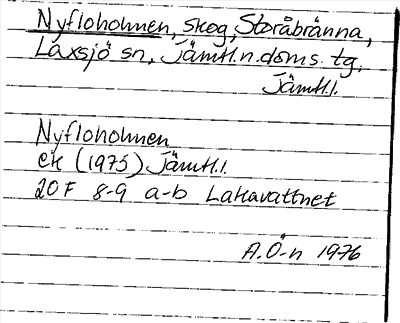 Nyfloholmen, skog, Storåbränna,
Laxsjö sn, Jämtl.n.doms. tg.
Jämtl.l.
Nyfloholmen
ek (1975) Jämtl.l.
20F 8-9 a-b Lakavattnet
A.Ö-n 1976